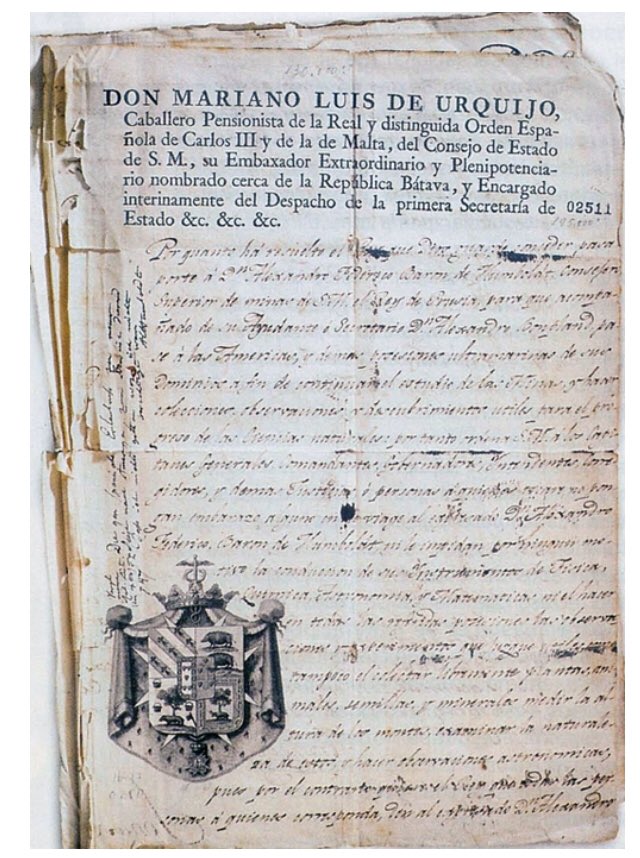 DON MARIANO LUIS DE URQUIJO,
Caballero Pensionista de la Real y distinguida Orden Espa-
ñola de Carlos III y de la de Malta, del Consejo de Estado
de S. M., su Embaxador Extraordinario y Plenipotencia-
rio nombrado cerca de la República Bátava, y Encargado
interinamente del Despacho de la primera Secretaría de 02511
Estado &c. &c. &c.
Por quanto ha resuelto el Rey que Dios guarde conceder pasa
porte á Dn. Alexandro Federico Baron de Humboldt, Consejero
Superior de minas de S.M. el Rey de Prusia, para que acompa-
ñado de su Ayudante ó Secretario Dn. Alexandro Bonpland, pa
se á las Americas, y demas posesiones ultramarinas de sus
Dominios a fin de continuar el estudio de las Minas, y hacer
colecciones, observaciones, y descubrimientos utiles para el pro
greso de las Ciencias naturales: por tanto ordena S.M. á los Capi
tanes Generales, Comandantes, Gobernadores, Yntendentes, Corre
gidores, y demas Justicias ó personas á quienes no pon
gan embarazo alguno en su viage al expresado Dn. Alexandro
Federico, Baron de Humboldt, ni le impidan por ningun mo-
tivo la conduccion de sus Ynstrumentos de Fisica,
Quimica, Astronomia, y Matematicas, ni el hacer
en todas las posesiones las observa
ciones y experimentos que juzgue utiles, como
tampoco el colectar libremente plantas, ani
males, semillas, y minerales, medir la al
tura de los montes, examinar la naturale-
za de estos, y hacer observaciones astronomicas,
pues por el contrario quiere el Rey que todas las per
sonas á quienes corresponda, den al expresado Dn. Alexandro